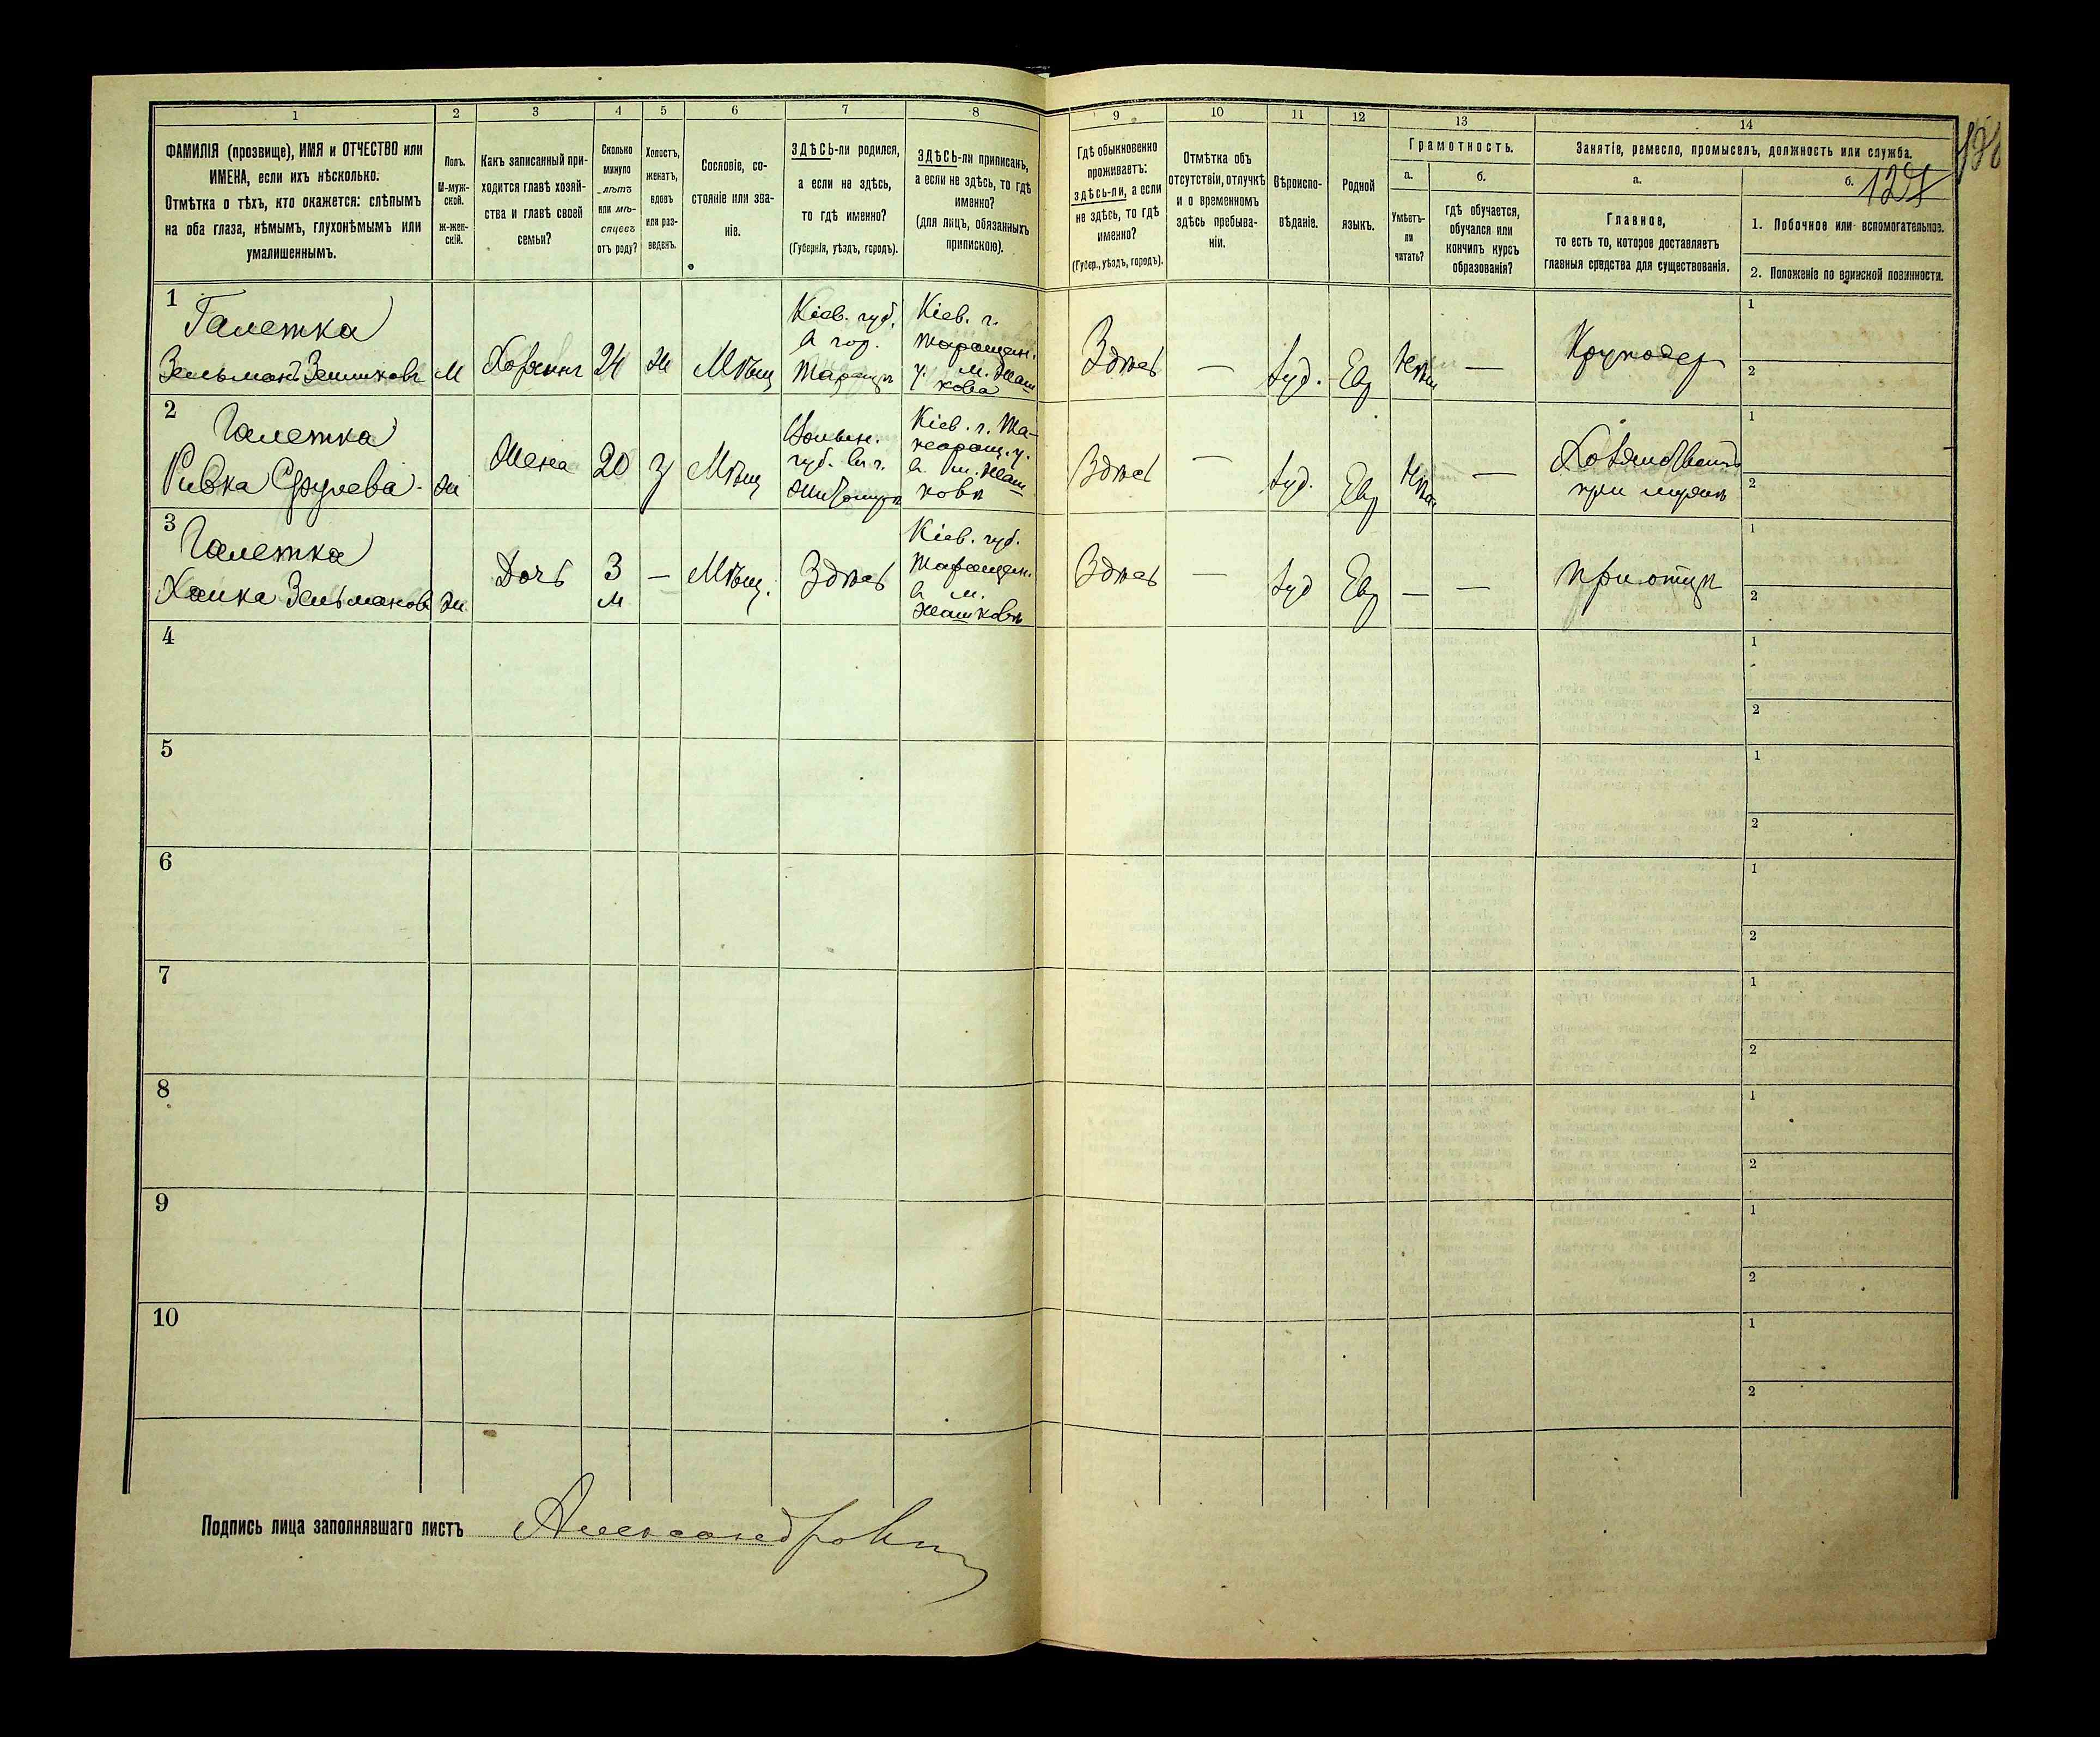 1 2 3 4 5 6 7 8 9 10 11 12 13 14
ФАМИЛІЯ (прозвище), ИМЯ и ОТЧЕСТВО или
ИМЕНА, если ихъ нѣсколько.
Отмѣтка о тѣхъ, кто окажется: слѣпымъ
на оба глаза, нѣмымъ, глухонѣмымъ или
умалишеннымъ.
Полъ.
М-муж-
ской.
Ж-жен-
скій.
Какъ записанный при-
ходится главѣ хозяй-
ства и главѣ своей
семьи?
Сколько
минуло
лѣтъ
или мѣ-
сяцевъ
отъ роду?
Холостъ,
женатъ,
вдовъ
или раз-
веденъ.
Сословіе, со-
стояніе или зва-
ніе.
ЗДѢСЬ-ли родился,
а если не здѣсь,
то гдѣ именно?
(Губернія, уѣздъ, городъ).
ЗДѢСЬ-ли приписанъ,
а если не здѣсь, то гдѣ
именно?
(для лицъ, обязанныхъ
припискою).
Гдѣ обыкновенно
проживаетъ:
здѣсь-ли, а если
не здѣсь, то гдѣ
именно?
(Губер., уѣздъ, городъ).
Отмѣтка объ
отсутствіи, отлучкѣ
и о временномъ
здѣсь пребыва-
ніи.
Вѣроиспо-
вѣданіе.
Родной
языкъ.
Грамотность.
а.
Умѣетъ-
ли
читать?
б.
гдѣ обучается,
обучался или
кончилъ курсъ
образованія?
Занятіе, ремесло, промыселъ, должность или служба.
а.
Главное,
то есть то, которое доставляетъ
главныя средства для существованія.
б.
1. Побочное или вспомогательное.
2. Положеніе по воинской повинности.
1
Галетка
Зельманъ
М
Хозяинъ
24
Ж
Мѣщ
Кіев. губ.
в гор.
Таращѣ
Кіев. г.
Таращан.
у. м. Жаш
кова
Здѣсь
—
Іуд.
Евр
—
1
2
2
Галетка
Ривка Срулева
Ж
Жена
20
З
Мѣщ
Волын.
губ. в г.
Житомирѣ
Кіев. г. Та-
в м. Жаш
ковѣ
Здѣсь
—
Іуд.
Евр
—
при мужѣ
1
2
3
Галетка
Хаика Зельманова
Ж
Дочь
3
м
—
Мѣщ.
Здѣсь
Кіев. губ.
Таращан.
в м.
Жашковѣ
Здѣсь
—
Іуд
Евр
—
—
При отцѣ
1
2
4
1
2
5
1
2
6
1
2
7
1
2
8
1
2
9
1
2
10
1
2
Подпись лица заполнявшаго листъ